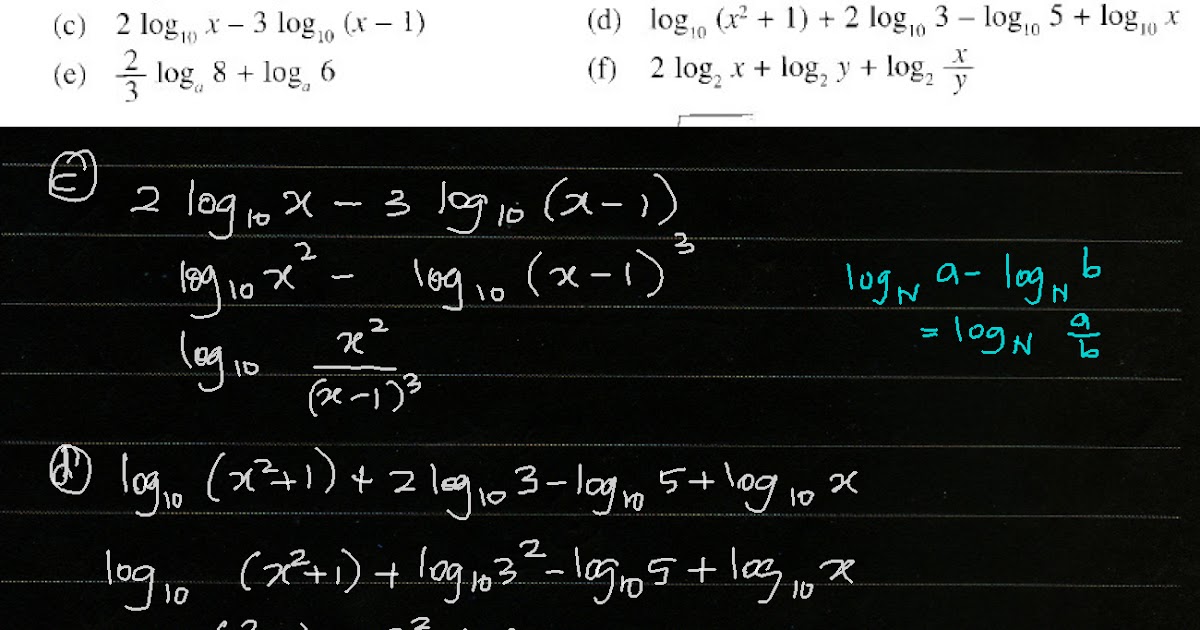 (c) 2 log₁₀ x − 3 log₁₀ (x − 1)
(d) log₁₀ (x² + 1) + 2 log₁₀ 3 − log₁₀ 5 + log₁₀ x
(e) 2/3 logₐ 8 + logₐ 6
(f) 2 log₂ x + log₂ y + log₂ x/y
(c) 2 log₁₀ x − 3 log₁₀ (x−1)
log₁₀ x² − log₁₀ (x−1)³
log₁₀ x²/(x−1)³
log_N a − log_N b
= log_N a/b
(d) log₁₀ (x²+1) + 2 log₁₀ 3 − log₁₀ 5 + log₁₀ x
log₁₀ (x²+1) + log₁₀ 3² − log₁₀ 5 + log₁₀ x